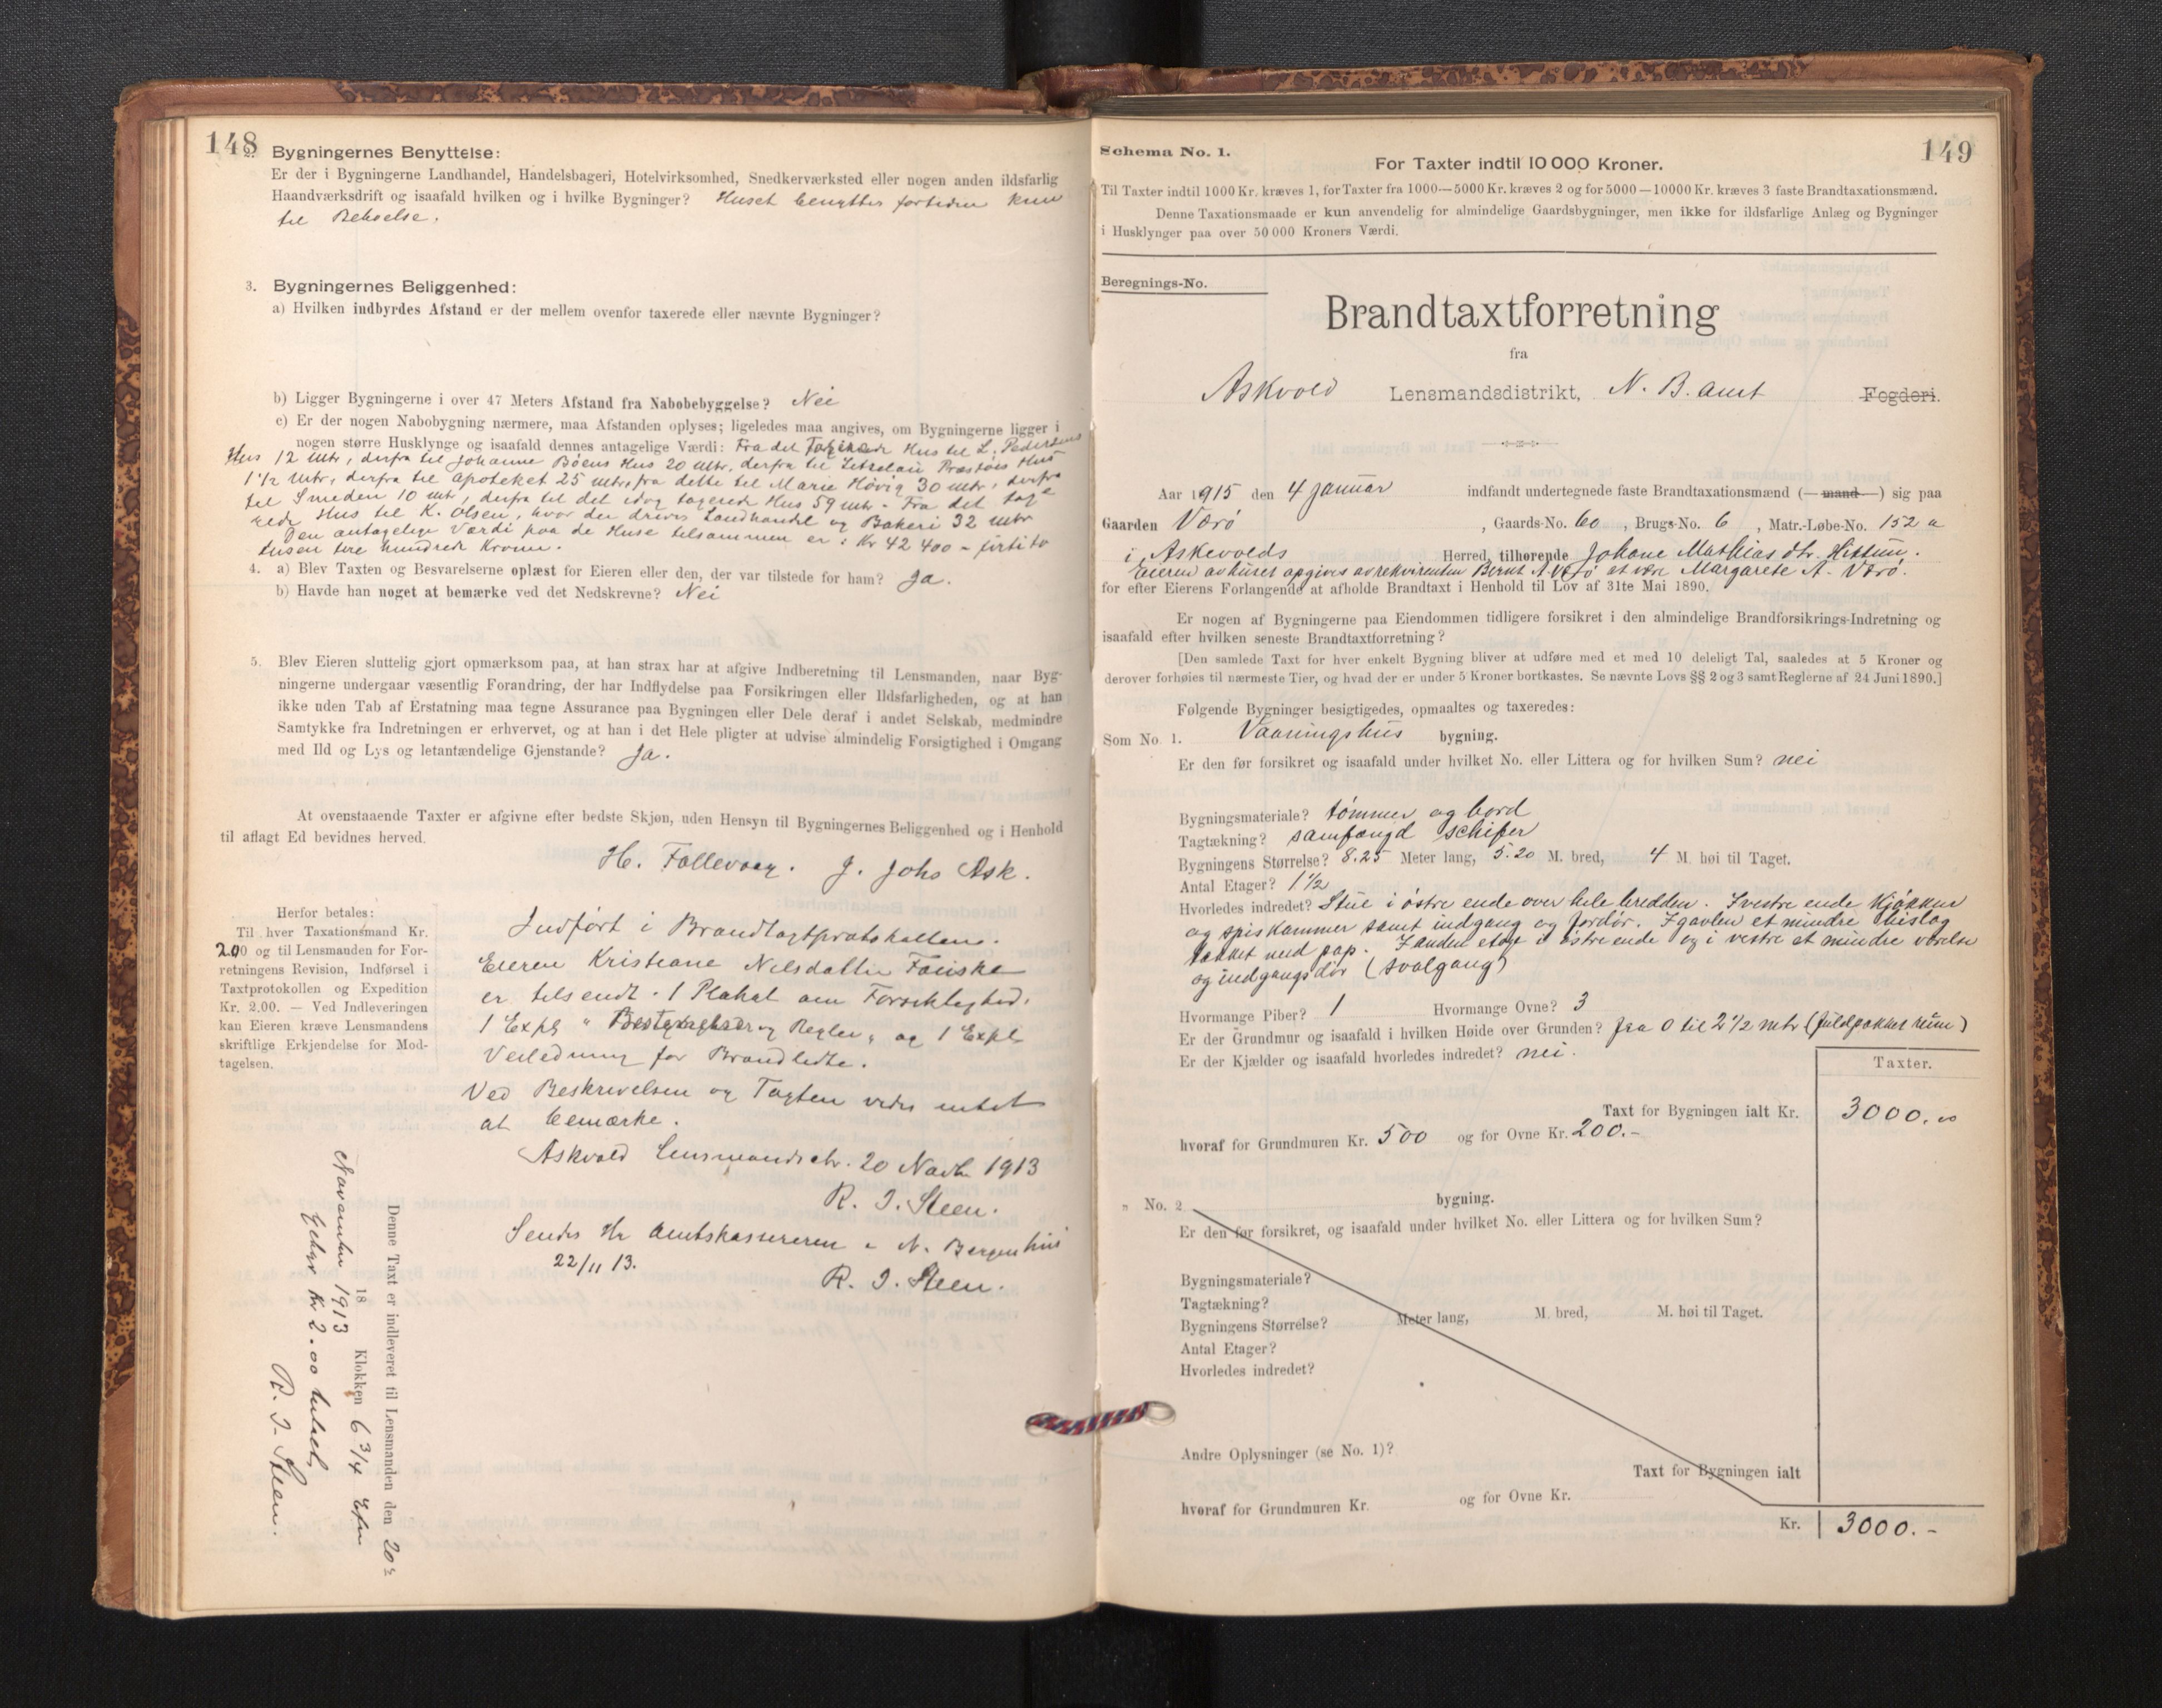 148
2. Bygningernes Benyttelse:
Er der i Bygningerne Landhandel, Handelsbageri, Hotelvirksomhed, Snedkerværksted eller nogen anden ildsfarlig
Haandværksdrift og isaafald hvilken og i hvilke Bygninger? Huset benyttes fortiden kun
til Beboelse.
3. Bygningernes Beliggenhed:
a) Hvilken indbyrdes Afstand er der mellem ovenfor taxerede eller nævnte Bygninger?
b) Ligger Bygningerne i over 47 Meters Afstand fra Nabobebyggelse? Nei
c) Er der nogen Nabobygning nærmere, maa Afstanden oplyses; ligeledes maa angives, om Bygningerne ligger i
nogen større Husklynge og isaafald dennes antagelige Værdi: Fra det taxerede Hus til L. Pedersens
Hus 12 mtr, derfra til Johanne Bøens Hus 20 mtr. derfra til Præstøis Hus
1 1/2 mtr, derfra til Apoteket 25 mtr, fra dette til Marie Høvig 30 mtr, derfra
til Smeden 10 mtr, derfra til det idag taxerede Hus 59 mtr. Fra det taxe
rede Hus til K. Olsen, hvor der drives Landhandel og Bakeri 32 mtr
Den antagelige Værdi paa de Huse tilsammen er: Kr 42 400 - førtito
tusen fire hundrede Kroner.
4. a) Blev Taxten og Besvarelserne oplæst for Eieren eller den, der var tilstede for ham? Ja.
b) Havde han noget at bemærke ved det Nedskrevne? Nei
5. Blev Eieren sluttelig gjort opmærksom paa, at han strax har at afgive Indberetning til Lensmanden, naar Byg-
ningerne undergaar væsentlig Forandring, der har Indflydelse paa Forsikringen eller Ildsfarligheden, og at han
ikke uden Tab af Erstatning maa tegne Assurance paa Bygningen eller Dele deraf i andet Selskab, medmindre
Samtykke fra Indretningen er erhvervet, og at han i det Hele pligter at udvise almindelig Forsigtighed i Omgang
med Ild og Lys og letantændelige Gjenstande? Ja.
At ovenstaaende Taxter er afgivne efter bedste Skjøn, uden Hensyn til Bygningernes Beliggenhed og i Henhold
til aflagt Ed bevidnes herved.
H. Follevaag. J. Johs Ask.
Herfor betales:
Til hver Taxationsmand Kr.
2.00 og til Lensmanden for For-
retningens Revision, Indførsel i
Taxtprotokollen og Expedition
Kr. 2.00. — Ved Indleveringen
kan Eieren kræve Lensmandens
skriftlige Erkjendelse for Mod-
tagelsen.
Indført i Brandtaxtprotokollen.
Eieren Kristiane Nilsdatter Fauske
er tilsendt 1 Plakat om Forsiktighed,
1 Expl " Bestemmelser og Regler " og 1 Expl
Veiledning for Brandledte.
Ved Beskrivelsen og Taxten vides intet
at bemærke.
Askvold Lensmandsktr. 20 Novbr 1913
R. J. Steen.
Sendes Hr Amtskassereren i N. Bergenhus
22/11 13.
R. J. Steen.
Denne Taxt er indleveret til Lensmanden den 20de
November 1913 18 Klokken 6 3/4 Efm
Gebyr Kr 2.00 betalt
R. J. Steen.
149
Schema No. 1.
For Taxter indtil 10 000 Kroner.
Til Taxter indtil 1000 Kr. kræves 1, for Taxter fra 1000—5000 Kr. kræves 2 og for 5000—10000 Kr. kræves 3 faste Brandtaxationsmænd.
Denne Taxationsmaade er kun anvendelig for almindelige Gaardsbygninger, men ikke for ildsfarlige Anlæg og Bygninger
i Husklynger paa over 50 000 Kroners Værdi.
Beregnings-No.
Brandtaxtforretning
fra
Askvold Lensmandsdistrikt, N. B. amt Fogderi.
Aar 1915 den 4 Januar indfandt undertegnede faste Brandtaxationsmænd (—mand—) sig paa
Gaarden Værø, Gaards-No. 60, Brugs-No. 6, Matr.-Løbe-No. 152 a
i Askevolds Herred, tilhørende Johane Mathias dtr. Hittun.
Eieren av huset opgives av rekvirenten Bernt A. Værø at være Margarete A. Værø.
for efter Eierens Forlangende at afholde Brandtaxt i Henhold til Lov af 31te Mai 1890.
Er nogen af Bygningerne paa Eiendommen tidligere forsikret i den almindelige Brandforsikrings-Indretning og
isaafald efter hvilken seneste Brandtaxtforretning?
[Den samlede Taxt for hver enkelt Bygning bliver at udføre med et med 10 deleligt Tal, saaledes at 5 Kroner og
derover forhøies til nærmeste Tier, og hvad der er under 5 Kroner bortkastes. Se nævnte Lovs §§ 2 og 3 samt Reglerne af 24 Juni 1890.]
Følgende Bygninger besigtigedes, opmaaltes og taxeredes:
Som No. 1. Vaaningshus bygning.
Er den før forsikret og isaafald under hvilket No. eller Littera og for hvilken Sum? nei
Bygningsmateriale? tømmer og bord
Tagtækning? samfængd schifer
Bygningens Størrelse? 8.25 Meter lang, 5.20 M. bred, 4 M. høi til Taget.
Antal Etager? 1 1/2
Hvorledes indredet? Stue i østre ende over hele bredden. I vestre ende Kjøkken
og spiskammer samt indgang og fordør. I gavlen et mindre bislag
tækket med pap. I anden etage i østre ende og i vestre et mindre værelse
og indgangsdør (svalgang)
Hvormange Piber? 1 Hvormange Ovne? 3
Er der Grundmur og isaafald i hvilken Høide over Grunden? fra 0 til 2 1/2 mtr (fuldpakket rum)
Er der Kjælder og isaafald hvorledes indredet? nei.
Taxter.
Taxt for Bygningen ialt Kr. 3000.00
hvoraf for Grundmuren Kr. 500 og for Ovne Kr. 200.-
" No. 2 bygning.
Er den før forsikret, og isaafald under hvilket No. eller Littera og for hvilken Sum?
Bygningsmateriale?
Tagtækning?
Bygningens Størrelse? Meter lang, M. bred, M. høi til Taget.
Antal Etager?
Hvorledes indredet?
Andre Oplysninger (se No. 1)?
Taxt for Bygningen ialt
hvoraf for Grundmuren Kr. og for Ovne Kr.
Kr. 3000.-